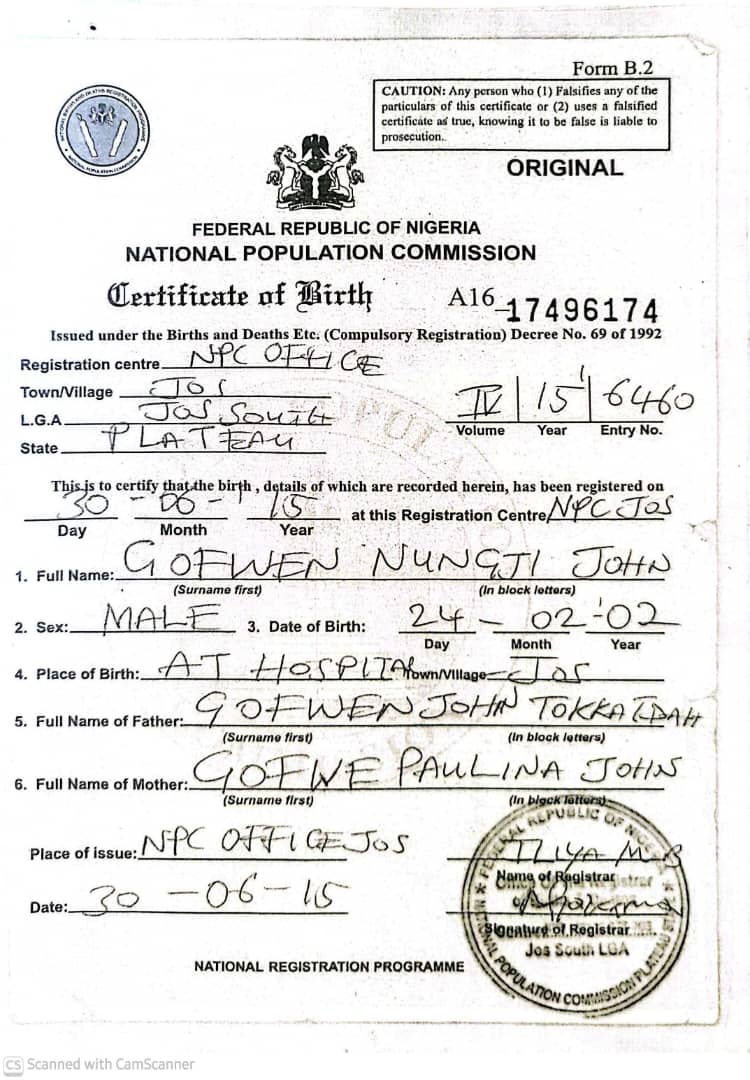 Form B.2
CAUTION: Any person who (1) Falsifies any of the
particulars of this certificate or (2) uses a falsified
certificate as true, knowing it to be false is liable to
prosecution.
ORIGINAL
FEDERAL REPUBLIC OF NIGERIA
NATIONAL POPULATION COMMISSION
Certificate of Birth A16 17496174
Issued under the Births and Deaths Etc. (Compulsory Registration) Decree No. 69 of 1992
Registration centre NPC OFFICE
Town/Village JOS
L.G.A. JOS SOUTH
State PLATEAU
IV 15 6460
Volume Year Entry No.
This is to certify that the birth, details of which are recorded herein, has been registered on
30 - 06 - 15 at this Registration Centre NPC JOS
Day Month Year
1. Full Name: GOFWEN NUNGTI JOHN
(Surname first) (In block letters)
2. Sex: MALE 3. Date of Birth: 24 - 02 - 02
Day Month Year
4. Place of Birth: AT HOSPITAL Town/Village JOS
5. Full Name of Father: GOFWEN JOHN
(Surname first) (In block letters)
6. Full Name of Mother: GOFWE PAULINA JOHN
(Surname first) (In block letters)
Place of issue: NPC OFFICE JOS
ILIYA M B
Name of Registrar
Date: 30 - 06 - 15
Signature of Registrar
Jos South LGA
NATIONAL REGISTRATION PROGRAMME
CS Scanned with CamScanner